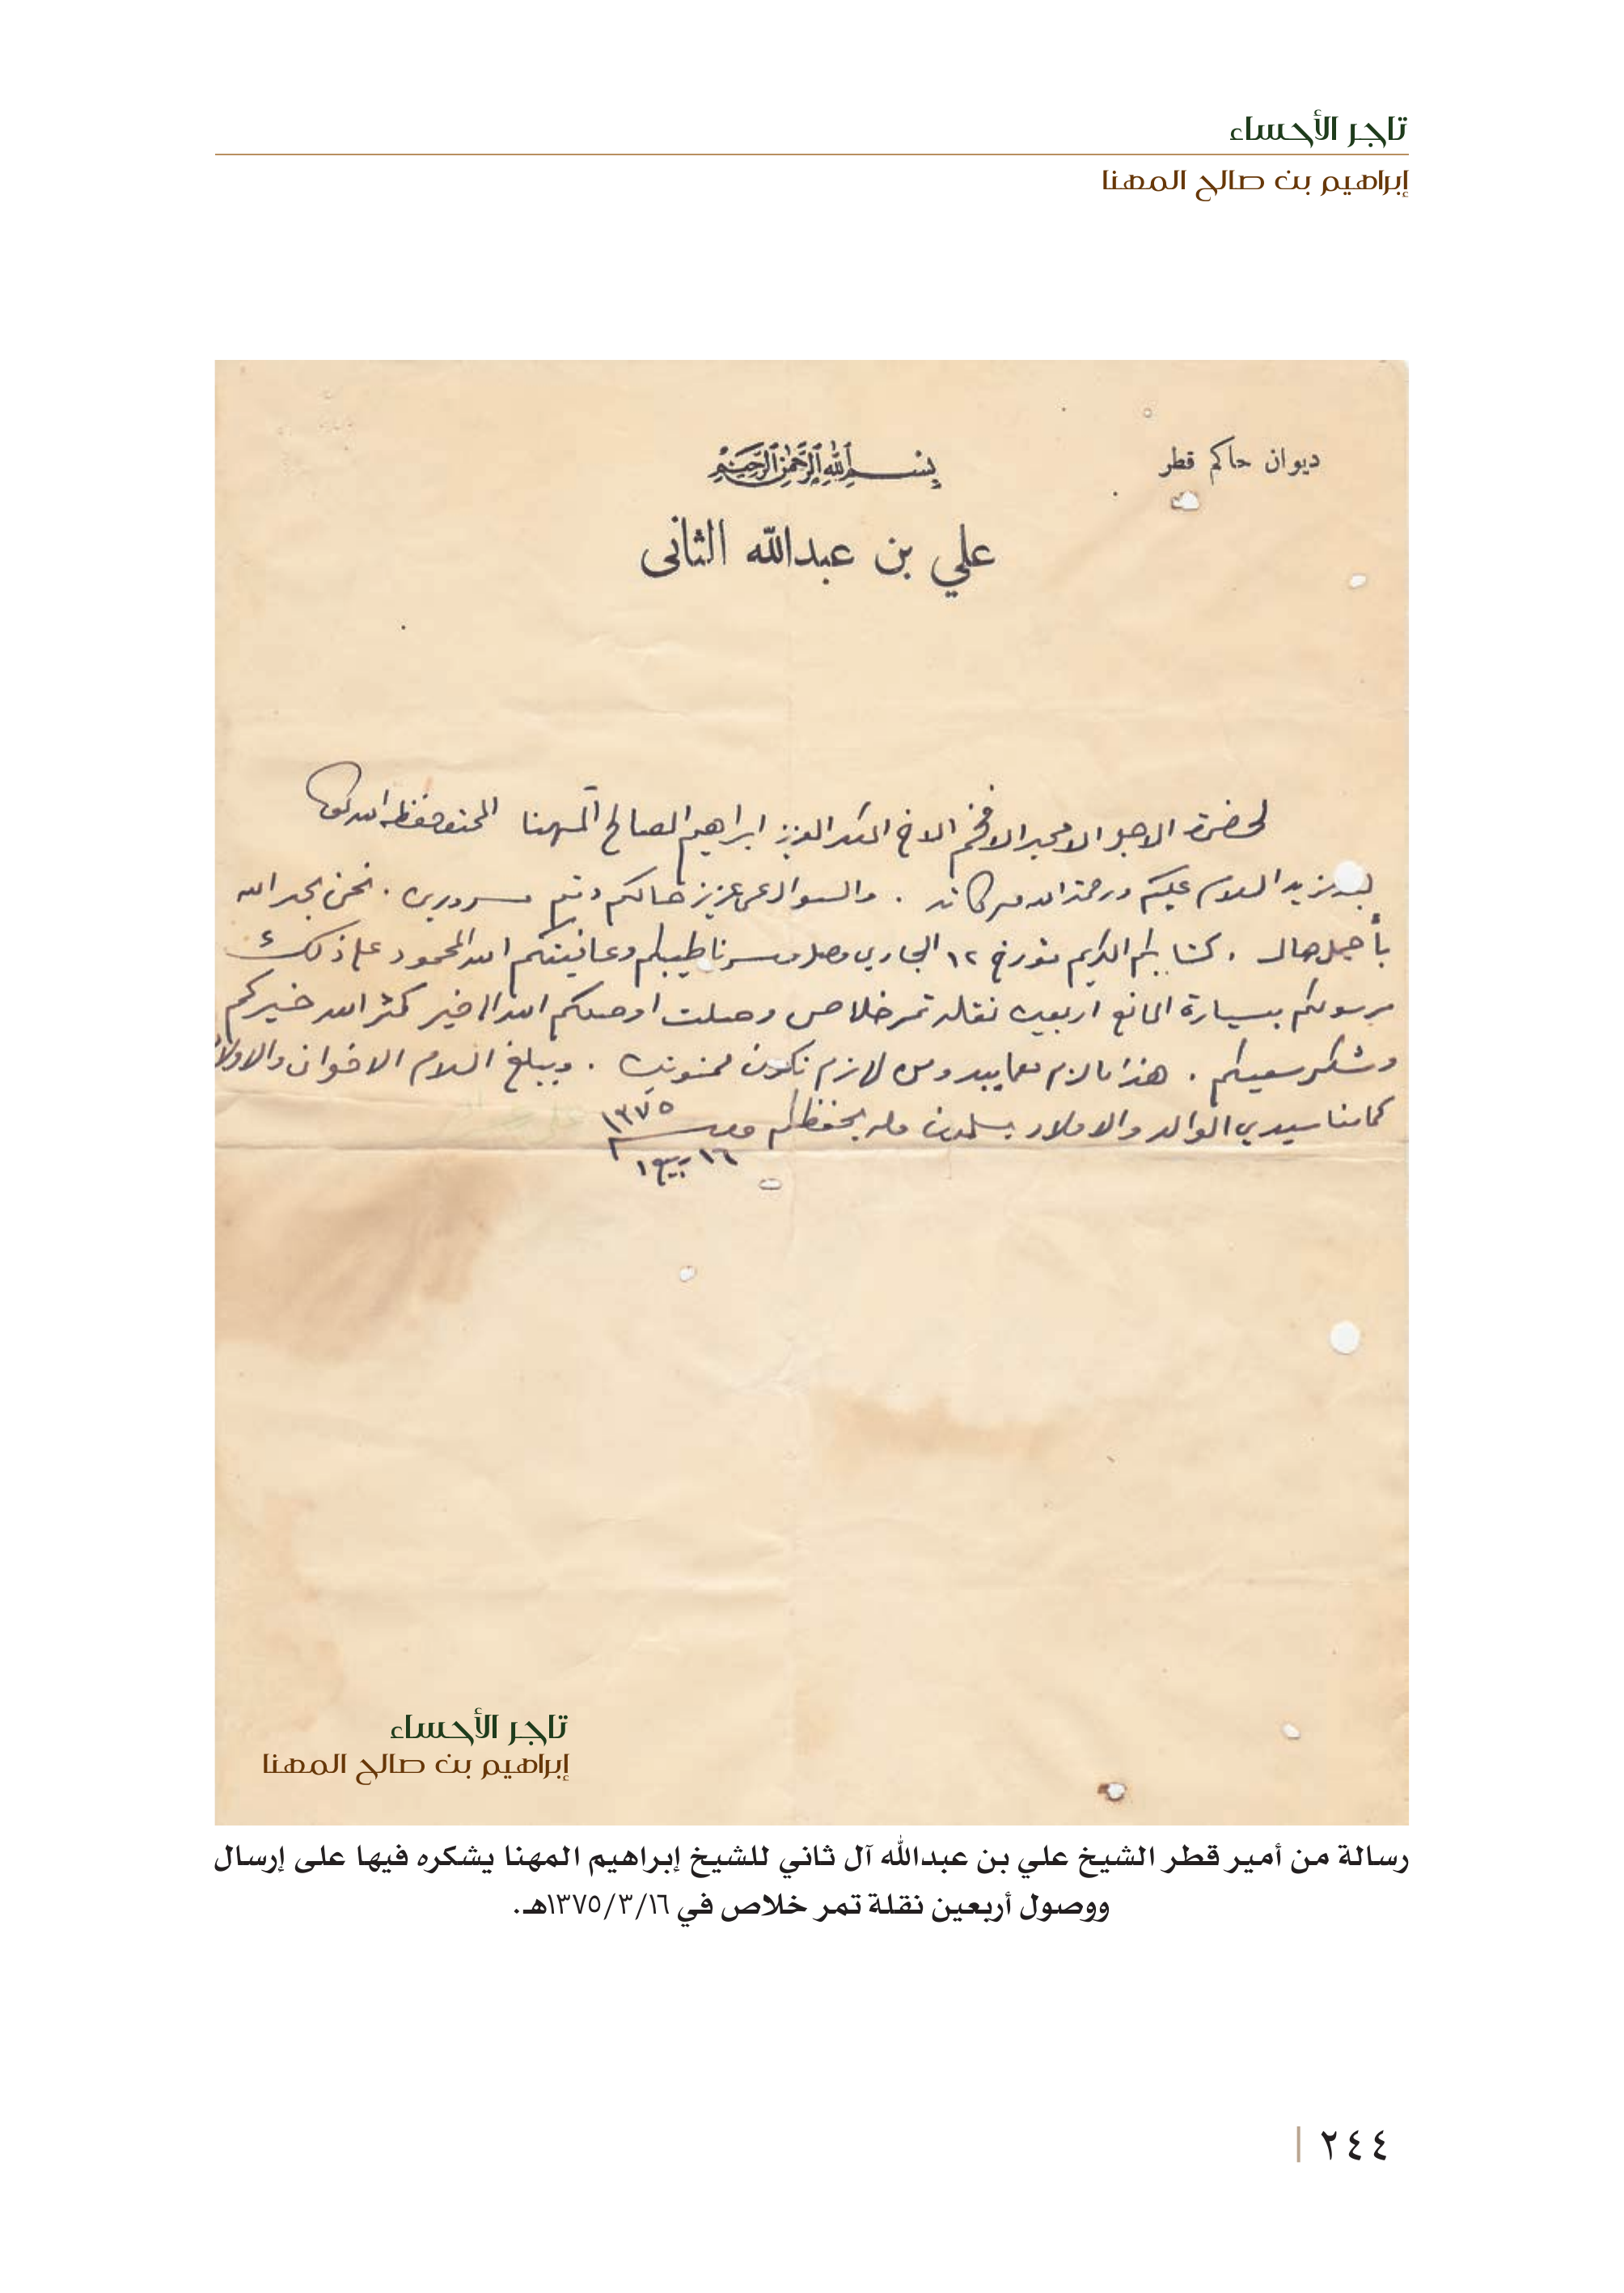 تاجر الأحساء
إبراهيم بن صالح المهنا
ديوان حاكم قطر
بسم الله الرحمن الرحيم
علي بن عبدالله الثانى
لحضرة الاجل الامجد الافخم الاخ المكرم العزيز ابراهيم الصالح المهنا المحترم حفظه الله تعالى
بمزيد السلام عليكم ورحمة الله وبركاته . والسوال عن عزيز حالكم دمتم مسرورين . نحن بحمد الله
بأجمل حال . كتابكم الكريم مؤرخ ١٢ الجاري وصل وسرنا طيبكم وعافيتكم الله المحمود على ذلك
مرسولكم بسيارة المانع اربعين نقله تمر خلاص وصلت اوصلكم الله الى خير كثر الله خيركم
وشكر سعيكم . هذا مالزم مع مايبدو من لازم نكون ممنونين . ويبلغ السلام الاخوان والاولاد
كما منا سيدي الوالد والاولاد يسلمون والله يحفظكم
١٣٧٥
١٦ ربيع ١
تاجر الأحساء
إبراهيم بن صالح المهنا
رسالة من أمير قطر الشيخ علي بن عبدالله آل ثاني للشيخ إبراهيم المهنا يشكره فيها على إرسال
ووصول أربعين نقلة تمر خلاص في ١٣٧٥/٣/١٦هـ.
٢٤٤